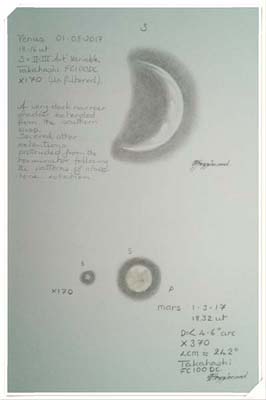 S
Venus 01-03-2017
18:16 ut
S = II-III Ant Variable
Takahashi
FC100DC
X170 (Un filtered).
A very dark narrow
shadow extended
from the southern
cusp.
Several other
extentions
protruded from the
terminator following
the patterns of
rotation
S
S
X170
P
mars 1-3-17
18.32 ut
D=< 4.6" arc
X370
LCM = 242°
Takahashi
FC100DC